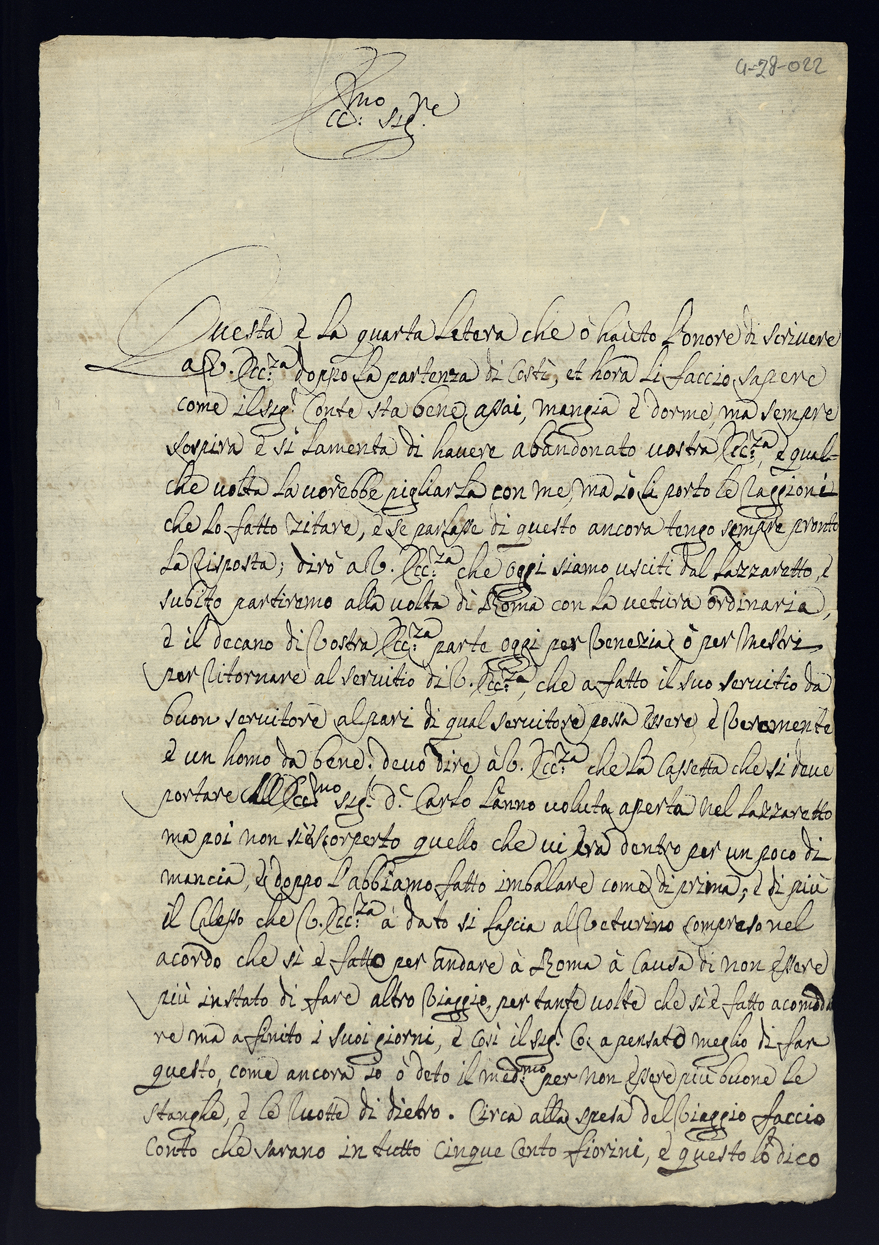 4-28-022
Ecc:mo Sig:re
Questa è la quarta letera che ò hauto l'onore di scriuere
a V. Ecc:za doppo la partenza di Costì, et hora li faccio sapere
come il sig.r Conte sta bene assai, mangia è dorme, ma sempre
sospira è si lamenta di hauere abandonato vostra Ecc:za, è qual=
che volta la vorebbe pigliarla con me, ma iò li porto le raggioni
che lo fatto zitare, è se parlasse di questo ancora tengo sempre pronto
la risposta; dirò a V. Ecc:za che oggi siamo usciti dal Lazzaretto, è
subito partiremo alla volta di Roma con la vetura ordinaria,
è il decano di Vostra Ecc:za parte oggi per Venezia ò per Mestri
per ritornare al seruitio di V. Ecc:za, che a fatto il suo seruitio da
buon seruitore al pari di qual seruitore possa essere è veramente
è un homo da bene. devo dire à V. Ecc:za che la Cassetta che si deve
portare all Ecc:mo sig.r D. Carlo l'anno voluta aperta nel Lazzaretto
ma poi non si è scorperto quello che vi era dentro per un poco di
mancia, è doppo l'abbiamo fatto imbalare come di prima; è di più
il Calesso che V. Ecc:za à dato si lascia al Veturino compreso nel
acordo che si è fatto per andare à Roma à Causa di non essere
più in stato di fare altro viaggio per tante volte che si è fatto acomoda
re ma a finito i suoi giorni, è Cosi il sig.r Co: a pensato meglio di far
questo, come ancora io ò deto il med:mo per non essere più buone le
stanghe, è le ruotte di dietro. Circa alla spesa del viaggio faccio
conto che sarano in tutto Cinque Cento fiorini, è questo lo dico